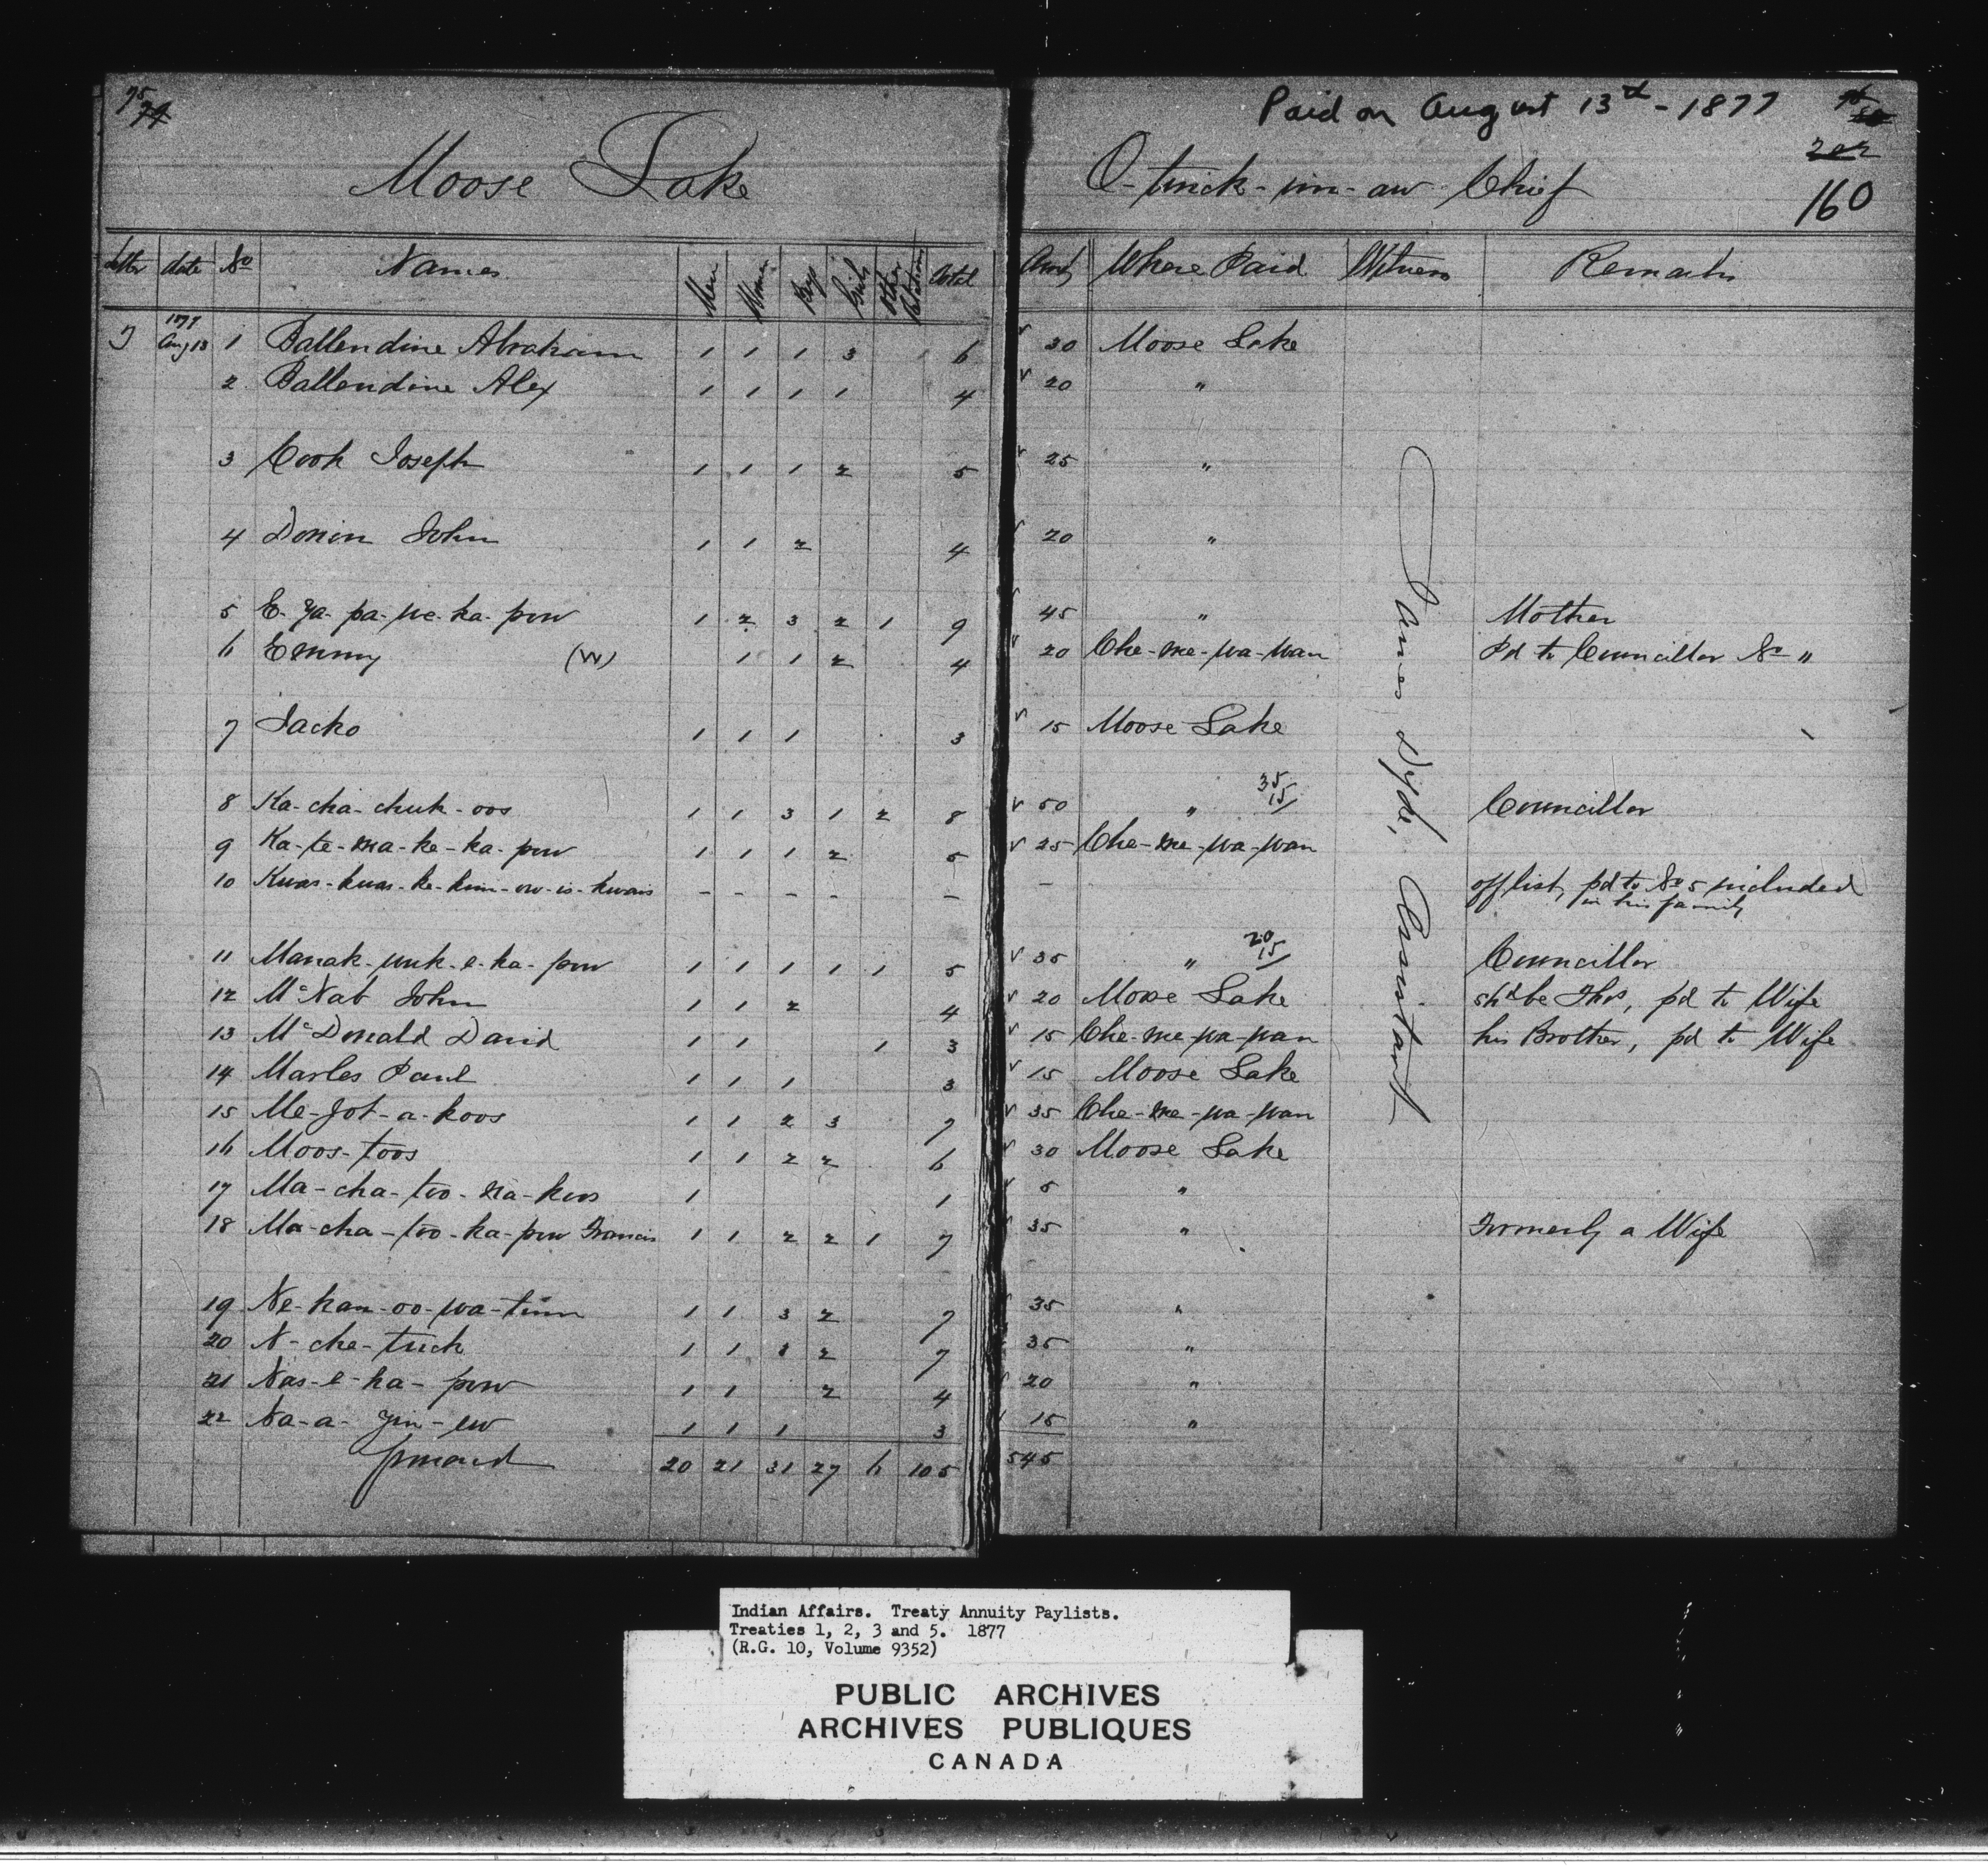 75 74
Moose Lake
Paid on August 13th - 1877
76 80
202
160
O-tinick-im-aw Chief
letter date No Names Men Women Boys Girls Other Relations Total Amt Where Paid Witness Remarks
1877
5 Aug 13 1 Ballendine Abraham 1 1 1 3 6 √ 30 Moose Lake
2 Ballendine Alex 1 1 1 1 4 √ 20 "
3 Cook Joseph 1 1 1 2 5 √ 25 "
4 Donin John 1 1 2 4 √ 20 "
5 E-ya-pa-we-ka-pow 1 2 3 2 1 9 √ 45 " Mother
6 Emmy (W) 1 1 2 4 √ 20 Che-me-wa-wan Pd to Councillor No "
7 Jacko 1 1 1 3 √ 15 Moose Lake
8 Ka-cha-chuk-oos 1 1 3 1 2 8 √ 50 " 35 15/ Councillor
9 Ka-te-ma-ke-ka-pow 1 1 1 2 5 √ 25 Che-me-wa-wan
10 Kwas-kwas-ke-kim-ow-is-kwais - - - - - - off list, pd to No 5 included
in his family
11 Manak-wuk-e-ka-pow 1 1 1 1 1 5 √ 35 " 20 15/ Councillor
12 McNab John 1 1 2 4 √ 20 Moose Lake shd be Thos, pd to Wife
13 McDonald David 1 1 1 3 √ 15 Che-me-wa-wan his Brother, pd to Wife
14 Marles Paul 1 1 1 3 √ 15 Moose Lake
15 Me-jot-a-koos 1 1 2 3 7 √ 35 Che-me-wa-wan
16 Moos-toos 1 1 2 2 6 √ 30 Moose Lake
17 Ma-cha-too-na-koos 1 1 √ 5 "
18 Ma-cha-too-ka-pow Francis 1 1 2 2 1 7 √ 35 " Formerly a Wife
19 Ne-kan-oo-wa-tinn 1 1 3 2 7 √ 35 "
20 N-che-tuck 1 1 3 2 7 35 "
21 Nas-e-ka-pow 1 1 2 4 √ 20 "
22 Na-a-yin-ew 1 1 1 3 √ 15 "
forward 20 21 31 27 6 105 545
James Dyde, Assistant
Indian Affairs. Treaty Annuity Paylists.
Treaties 1, 2, 3 and 5. 1877
(R.G. 10, Volume 9352)
PUBLIC ARCHIVES
ARCHIVES PUBLIQUES
CANADA